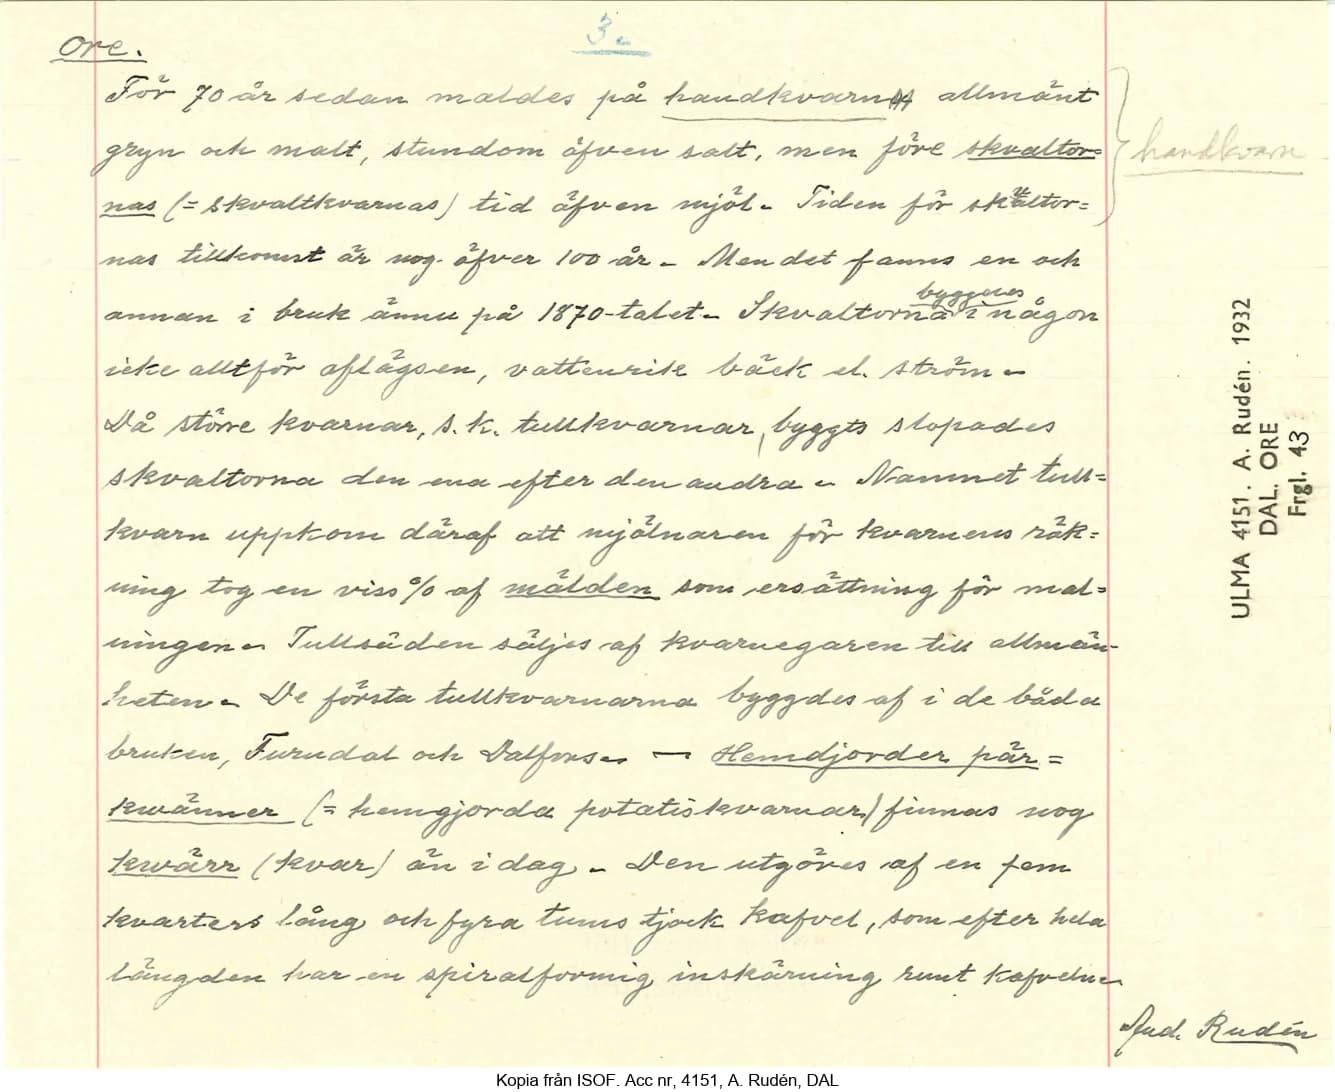 Ore.
3.
För 70 år sedan maldes på handkvarn allmänt
gryn och malt, stundom äfven salt, men före skvaltor=
nas (= skvaltkvarnas) tid äfven mjöl. Tiden för skvaltor=
nas tillkomst är nog öfver 100 år. Men det fanns en och
annan i bruk ännu på 1870-talet. Skvaltorna byggdes i någon
icke alltför aflägsen, vattenrik bäck el. ström.
Då större kvarnar, s.k. tullkvarnar, byggts slopades
skvaltorna den ena efter den andra. Namnet tull=
kvarn uppkom däraf att mjölnaren för kvarnens räk=
ning tog en viss % af mälden som ersättning för mal=
ningen. Tullsäden säljes af kvarnegaren till allmän-
heten. De första tullkvarnarna byggdes af i de båda
bruken, Furudal och Dalfors. — Hemdjorder pär=
kwänner (= hemgjorda potatiskvarnar) finnas nog
kwärr (kvar) än i dag. Den utgöres af en fem
kvarters lång och fyra tums tjock kafvel, som efter hela
längden har en spiralformig inskärning runt kafveln.
handkvarn
ULMA 4151. A. Rudén. 1932
DAL. ORE
Frgl. 43
And. Rudén
Kopia från ISOF. Acc nr, 4151, A. Rudén, DAL